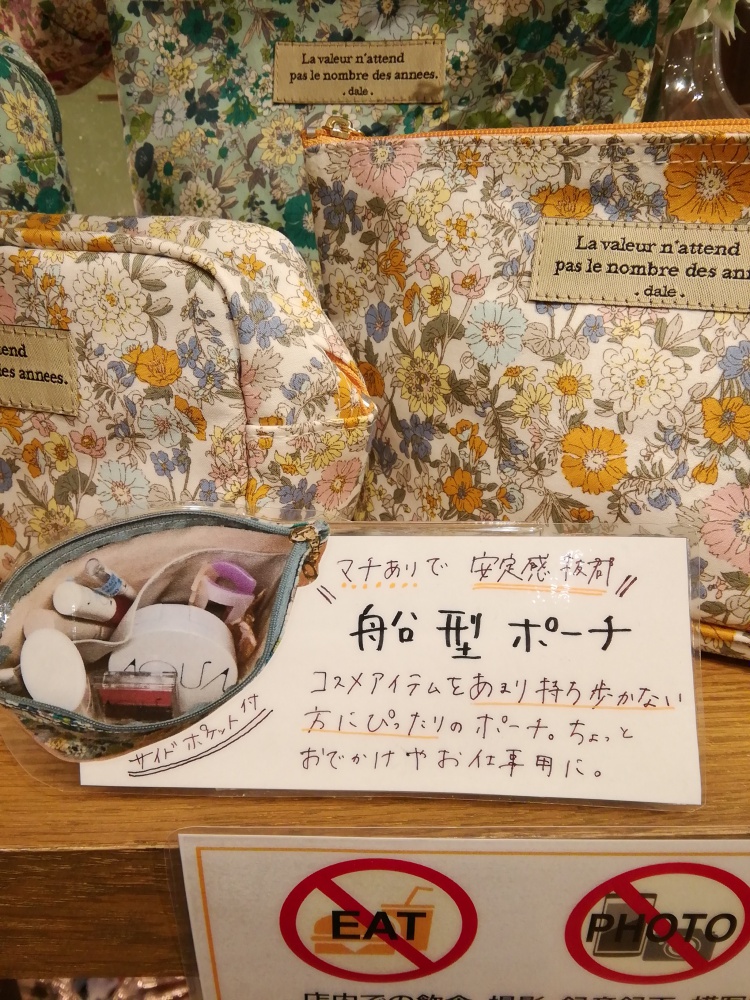 La valeur n'attend
pas le nombre des annees.
. dale .
La valeur n'attend
pas le nombre des ann
. dale .
tend
es annees.
マチありで 安定感抜群
船型ポーチ
コスメアイテムをあまり持ち歩かない
方にぴったりのポーチ。ちょっと
おでかけやお仕事用に。
サイドポケット付
AQUA
EAT
PHOTO
店内での飲食